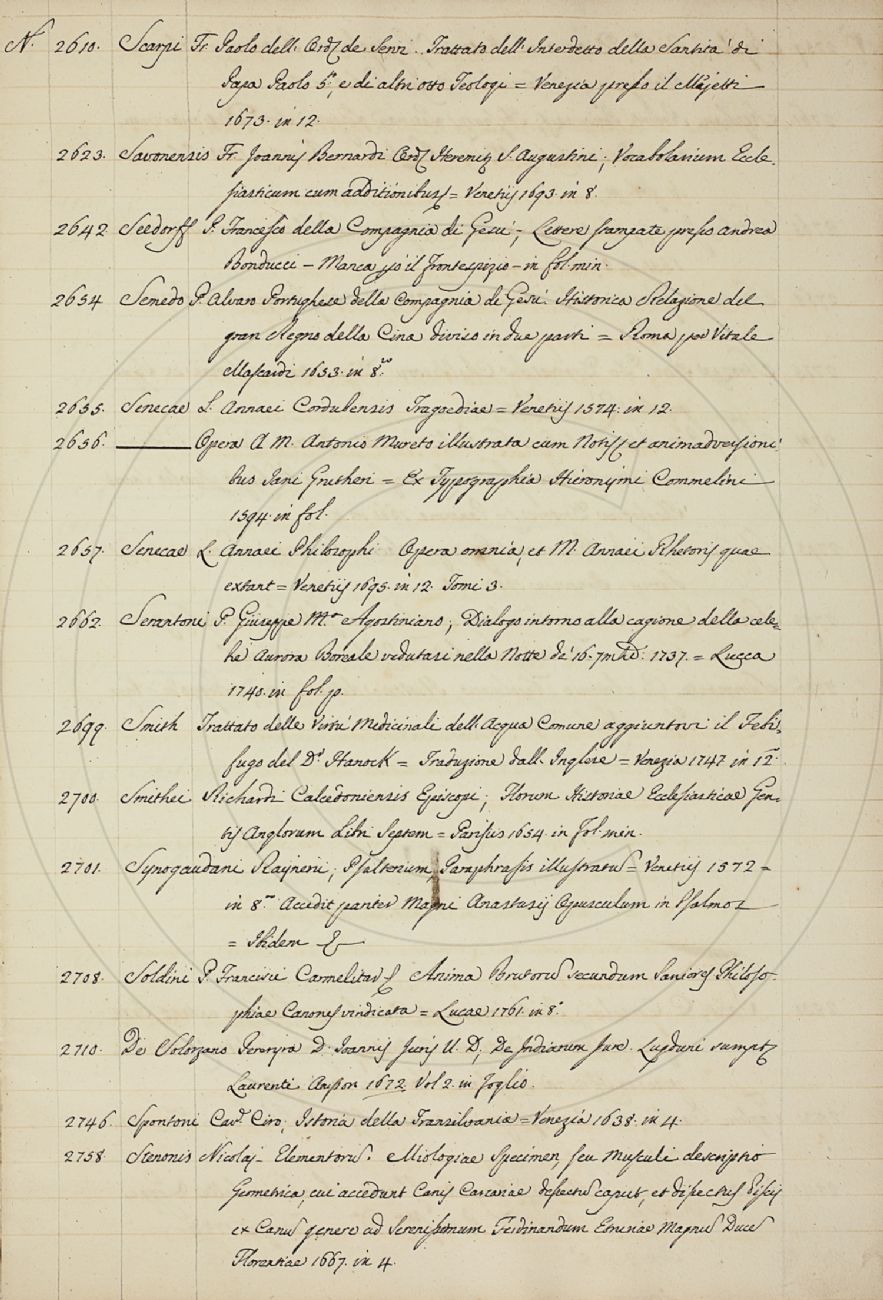 N.° 2610. Scarpi Fr. Paolo dell. Ord. de Servi. Trattato dell. Interdetto della Santità di
Papa Paolo 5.°, e di altri otto Teologi = Venezia presso il Majetti
1673. in 12.
2623. Savonensis Fr. Joannis Bernardi Ord. Heremit. S. Augustini; Vocabolarium Eccle,
siasticum cum additionibus = Venetiis 1693. in 8.
2642 Seedorff P. Francesco della Compagnia di Gesù -, Lettere stampate presso Andrea
Bonducci - Manca però il frontespizio - in fol. min.
2654 Semedo P. Alvaro Portughese della Compagnia di Gesù. Historica Relazione del
gran Regno della Cina diviso in due parti = Roma per Vitale
Mascardi 1653. in 8.vo
2655. Senecae L. Annaei Cordubensis Tragoediae = Venetiis 1574. in 12.
2656. Opera A M. Antonio Mureto illustrata cum Notis, et animadversioni,
bus Jani Grutheri = Ex Typographia Hieronymi Commelini
1594. in fol.
2657. Senecae L. Annaei Philosophi Opera omnia, et M. Annaei Rhetoris quae
extant = Venetiis 1695. in 12. Tomi 3.
2662. Serantoni P. Giuseppe M.a Agostiniano; Dialogo intorno alla cagione della cele,
bre Aurora Boreale vedutasi nella Notte de' 16. 1737. = Lucca
1740. in fol. p.
2699. Smith Trattato delle Virtù Medicinali dell. Acqua Comune aggiuntovi il Febi,
fugo del D.r Hanock = Traduzione dall. Inglese = Venezia 1747. in 12.
2700. Smithei Richardi Calcedoniensis Episcopi; Florum Historiae Ecclesiasticae Gen,
tis Anglorum Libri Septem = Parisiis 1654. in fol. min.
2701. Synogaudani Raynerii; Psalterium Paraphrasis illustratus = Venetiis 1572 =
in 8.vo Accedit pariter Magni Anastasij Opusculum in Psalmos
= Ibidem
2708. Soldini P. Francisci Carmelitae Anima Brutorum secundum Saniores Philoso,
phiae Canones vindicata = Lucae 1761. in 8.°
2710. De Solorzano Pereryra D. Joannis Juris U. D. De Indiarum Jure. Lugduni sumpt.
Laurentii Anisson 1672. Vol 2. in foglio.
2746. Spontoni Cav.r Ciro; Istoria della Transilvania = Venezia 1638. in 4.
2758. Stenonis Nicolaj - Elementorum. Miologiae Specimen, seu Musculi descriptio
Geometrica, cui accedunt Canis Carcariae dissectum caput, et dissectus Piscis
ex Canum genere ad Serenissimum Ferdinandum Etruriae Magnum Ducem
Florentiae 1667. in 4.